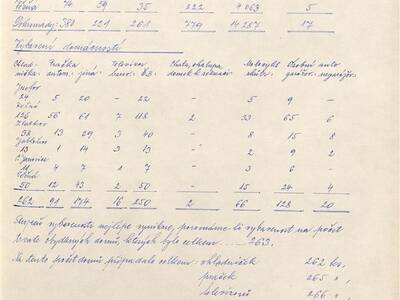 74 39 35 222 4 063 5
Dohromady: 380 221 261 779 14 287 17
Vybavení domácností
Pračka Televizor Chata, chalupa Motocykl Osobní auto
autom. jiná domek k rekreaci skútr garážov. negarážov.
24 5 20 — 22 — 5 9 —
126 56 61 7 118 2 33 65 6
38 13 29 3 40 — 8 15 8
13 1 14 3 13 — 2 9 2
11 4 7 1 7 — 3 6 —
50 12 43 2 50 — 15 24 4
262 91 174 16 250 2 66 128 20
vybavenosti nejlépe vynikne, porovnáme-li vybavenost na počet
trvale obydlených domů, kterých bylo celkem .... 263.
Na tento počet domů připadalo celkem: chladniček 262 ks,
praček 265 "
televizorů 266 "